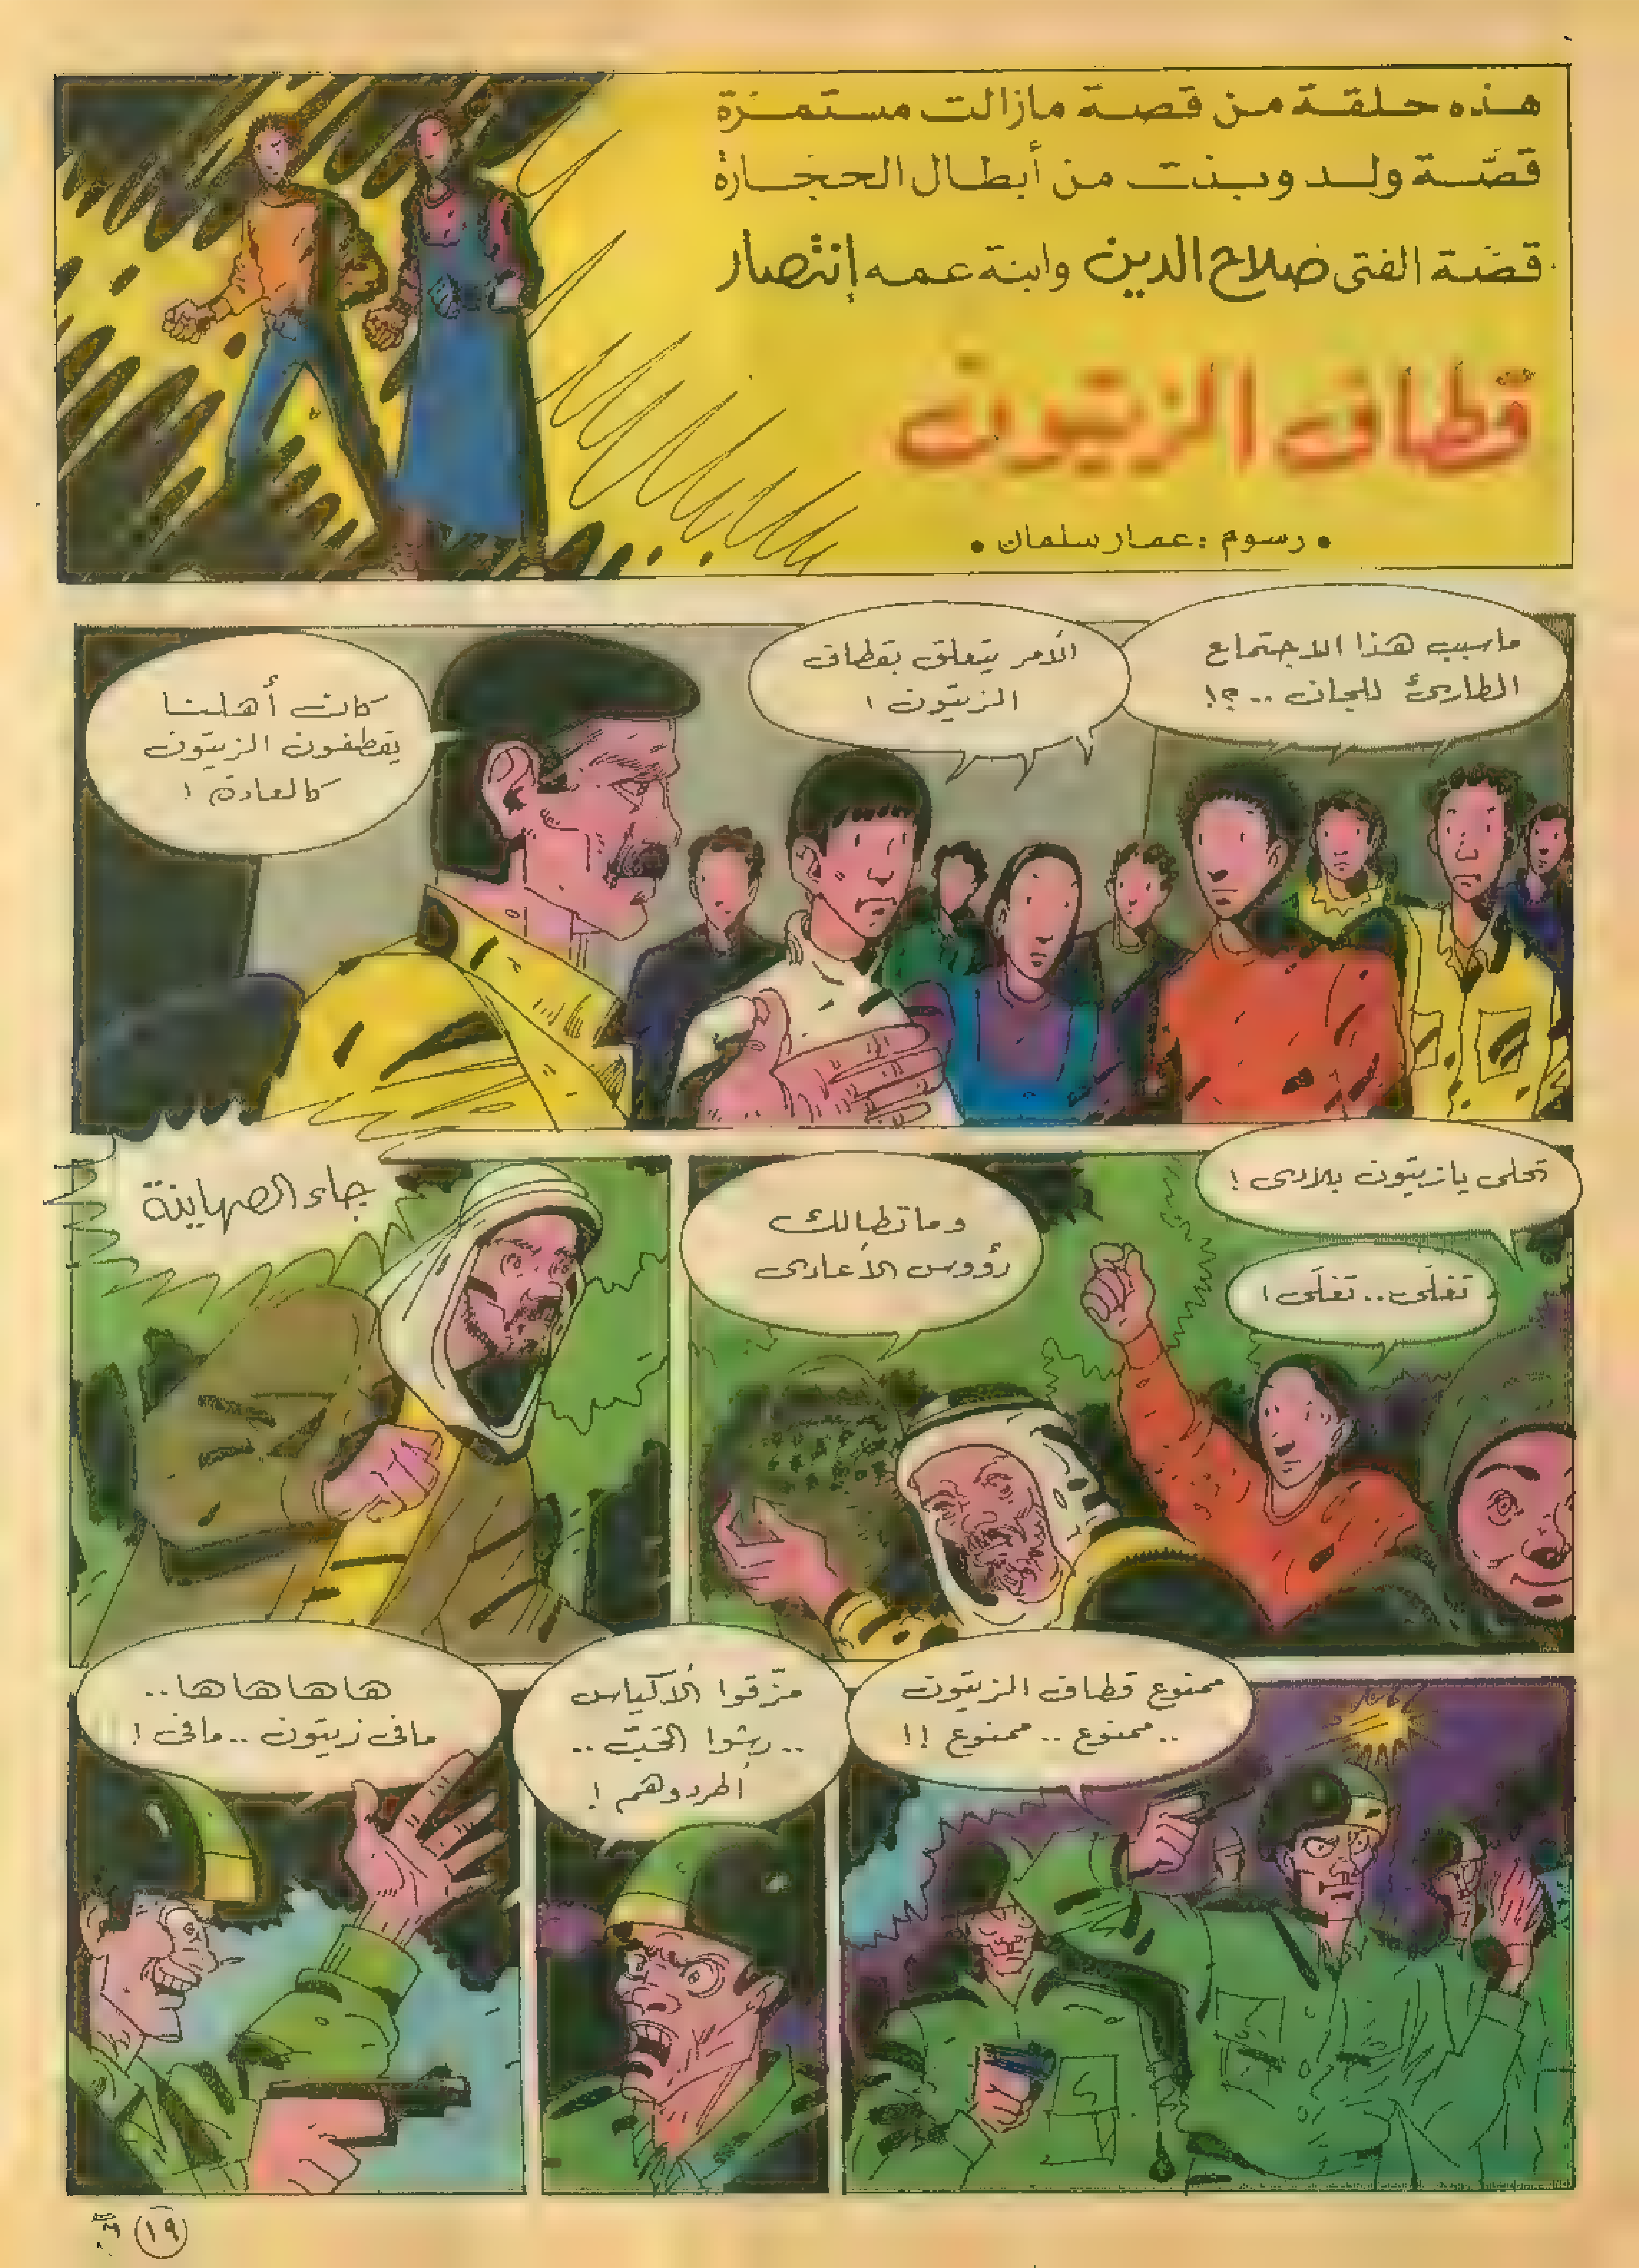 هذه حلقة من قصة مازالت مستمرة
قصّة ولد وبنت من أبطال الحجارة
قصّة الفتى صلاح الدين وابنة عمه إنتصار
قطاف الزيتون
• رسوم : عمار سلمان •
ماسبب هذا الاجتماع
الطارئ للجان ..؟!
الأمر يتعلق بقطاف
الزيتون !
كان أهلنا
يقطفون الزيتون
كالعادة !
تحلى يازيتون بلادى !
تغلَّى .. تغلَّى !
وماتطالك
رؤوس الأعادى
جاء الصهاينة
ممنوع قطاف الزيتون
.. ممنوع .. ممنوع !!
مزّقوا الأكياس
.. رشوا الحَبّ ..
أطردوهم !
هاهاهاها ..
مافى زيتون .. مافى !
١٩